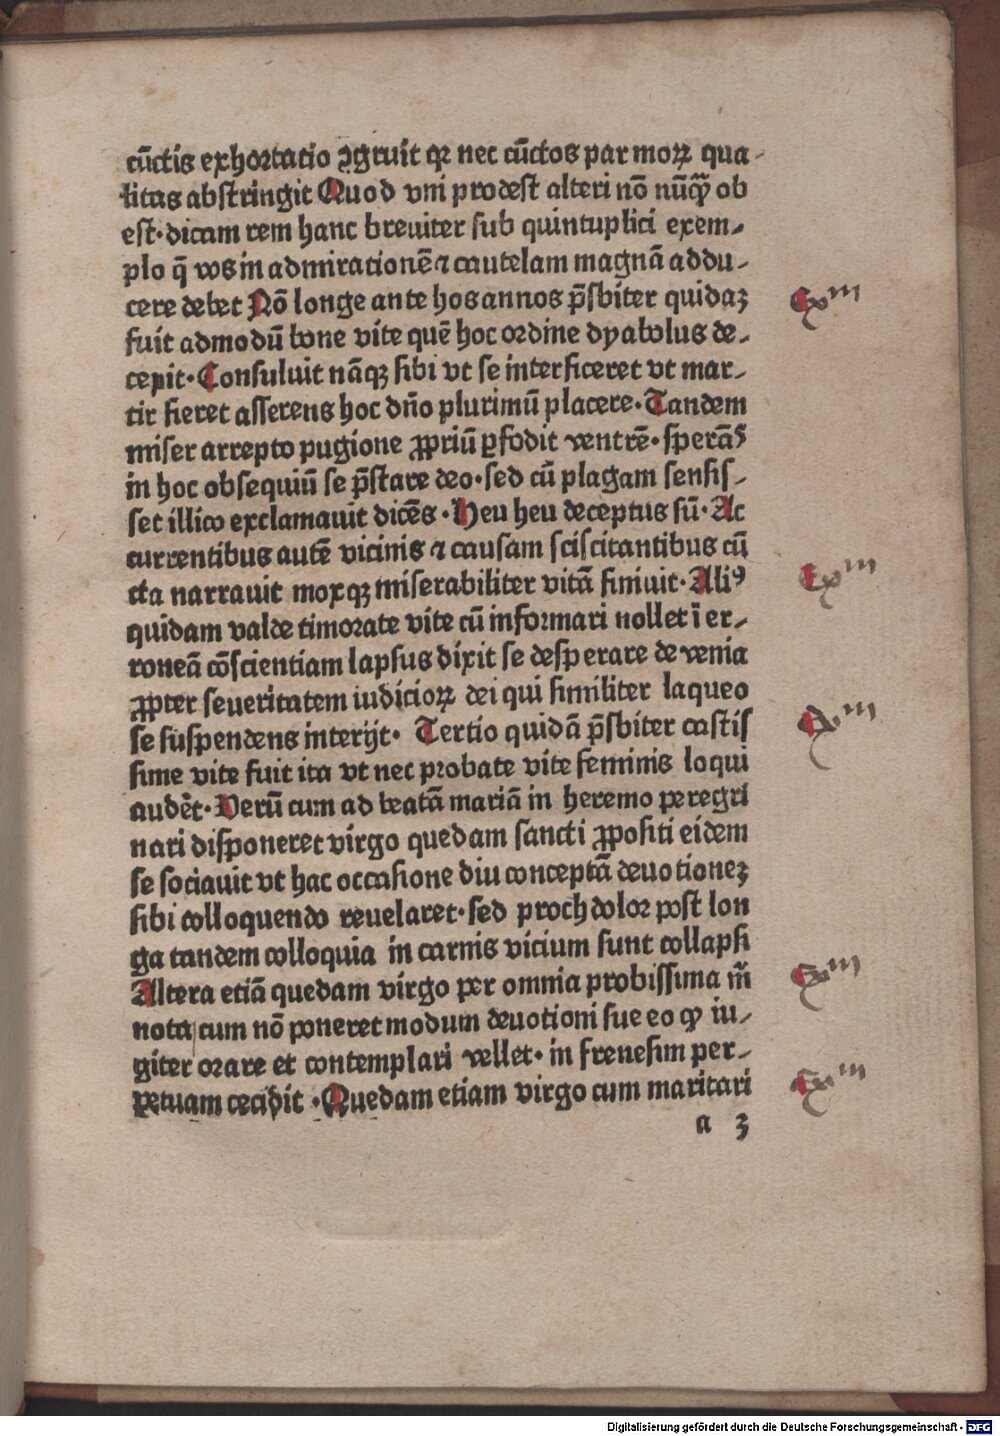 cūctis exhortatio ꝯgruit qꝛ nec cūctos par moꝝ qua-
litas abstringit Quod vni prodest alteri nō nūꝙ̄ ob
est·dicam rem hanc breuiter sub quintuplici exem-
plo q̄ vos in admirationē ⁊ cautelam magnā addu-
cere debet Nō longe ante hos annos p̄sbiter quidaꝫ
fuit admodū bone vite quē hoc ordine dyabolus de-
cepit·Consuluit nāqꝫ sibi vt se interficeret vt mar-
tir fieret asserens hoc dn̄o plurimū placere·Tandem
miser arrepto pugione ꝓpriū ꝑfodit ventrē·sperās
in hoc obsequiū se p̄stare deo·sed cū plagam sensis-
set illico exclamauit dicēs·Heu heu deceptus sū·Ac
currentibus autē vicinis ⁊ causam sciscitantibus cū
cta narrauit moxqꝫ miserabiliter vitā finiuit·Aliꝰ
quidam valde timorate vite cū informari nollet ī er-
roneā cōscientiam lapsus dixit se desperare de venia
ꝓpter seueritatem iudicioꝝ dei qui similiter laqueo
se suspendens interijt· Tertio quidā p̄sbiter castis
sime vite fuit ita vt nec probate vite feminis loqui
audēt·Verū cum ad beatā mariā in heremo peregri
nari disponeret virgo quedam sancti ꝓpositi eidem
se sociauit vt hac occasione diu conceptā deuotioneꝫ
sibi colloquendo reuelaret·sed proch dolor post lon
ga tandem colloquia in carnis vicium sunt collapsi
Altera etiā quedam virgo per omnia probissima m̄
nota cum nō poneret modum deuotioni sue eo ꝙ iu-
giter orare et contemplari vellet·in frenesim per-
petuam cecidit·Quedam etiam virgo cum maritari
a 3
Exᵐ
Exᵐ
Exᵐ
Exᵐ
Digitalisierung gefördert durch die Deutsche Forschungsgemeinschaft - DFG